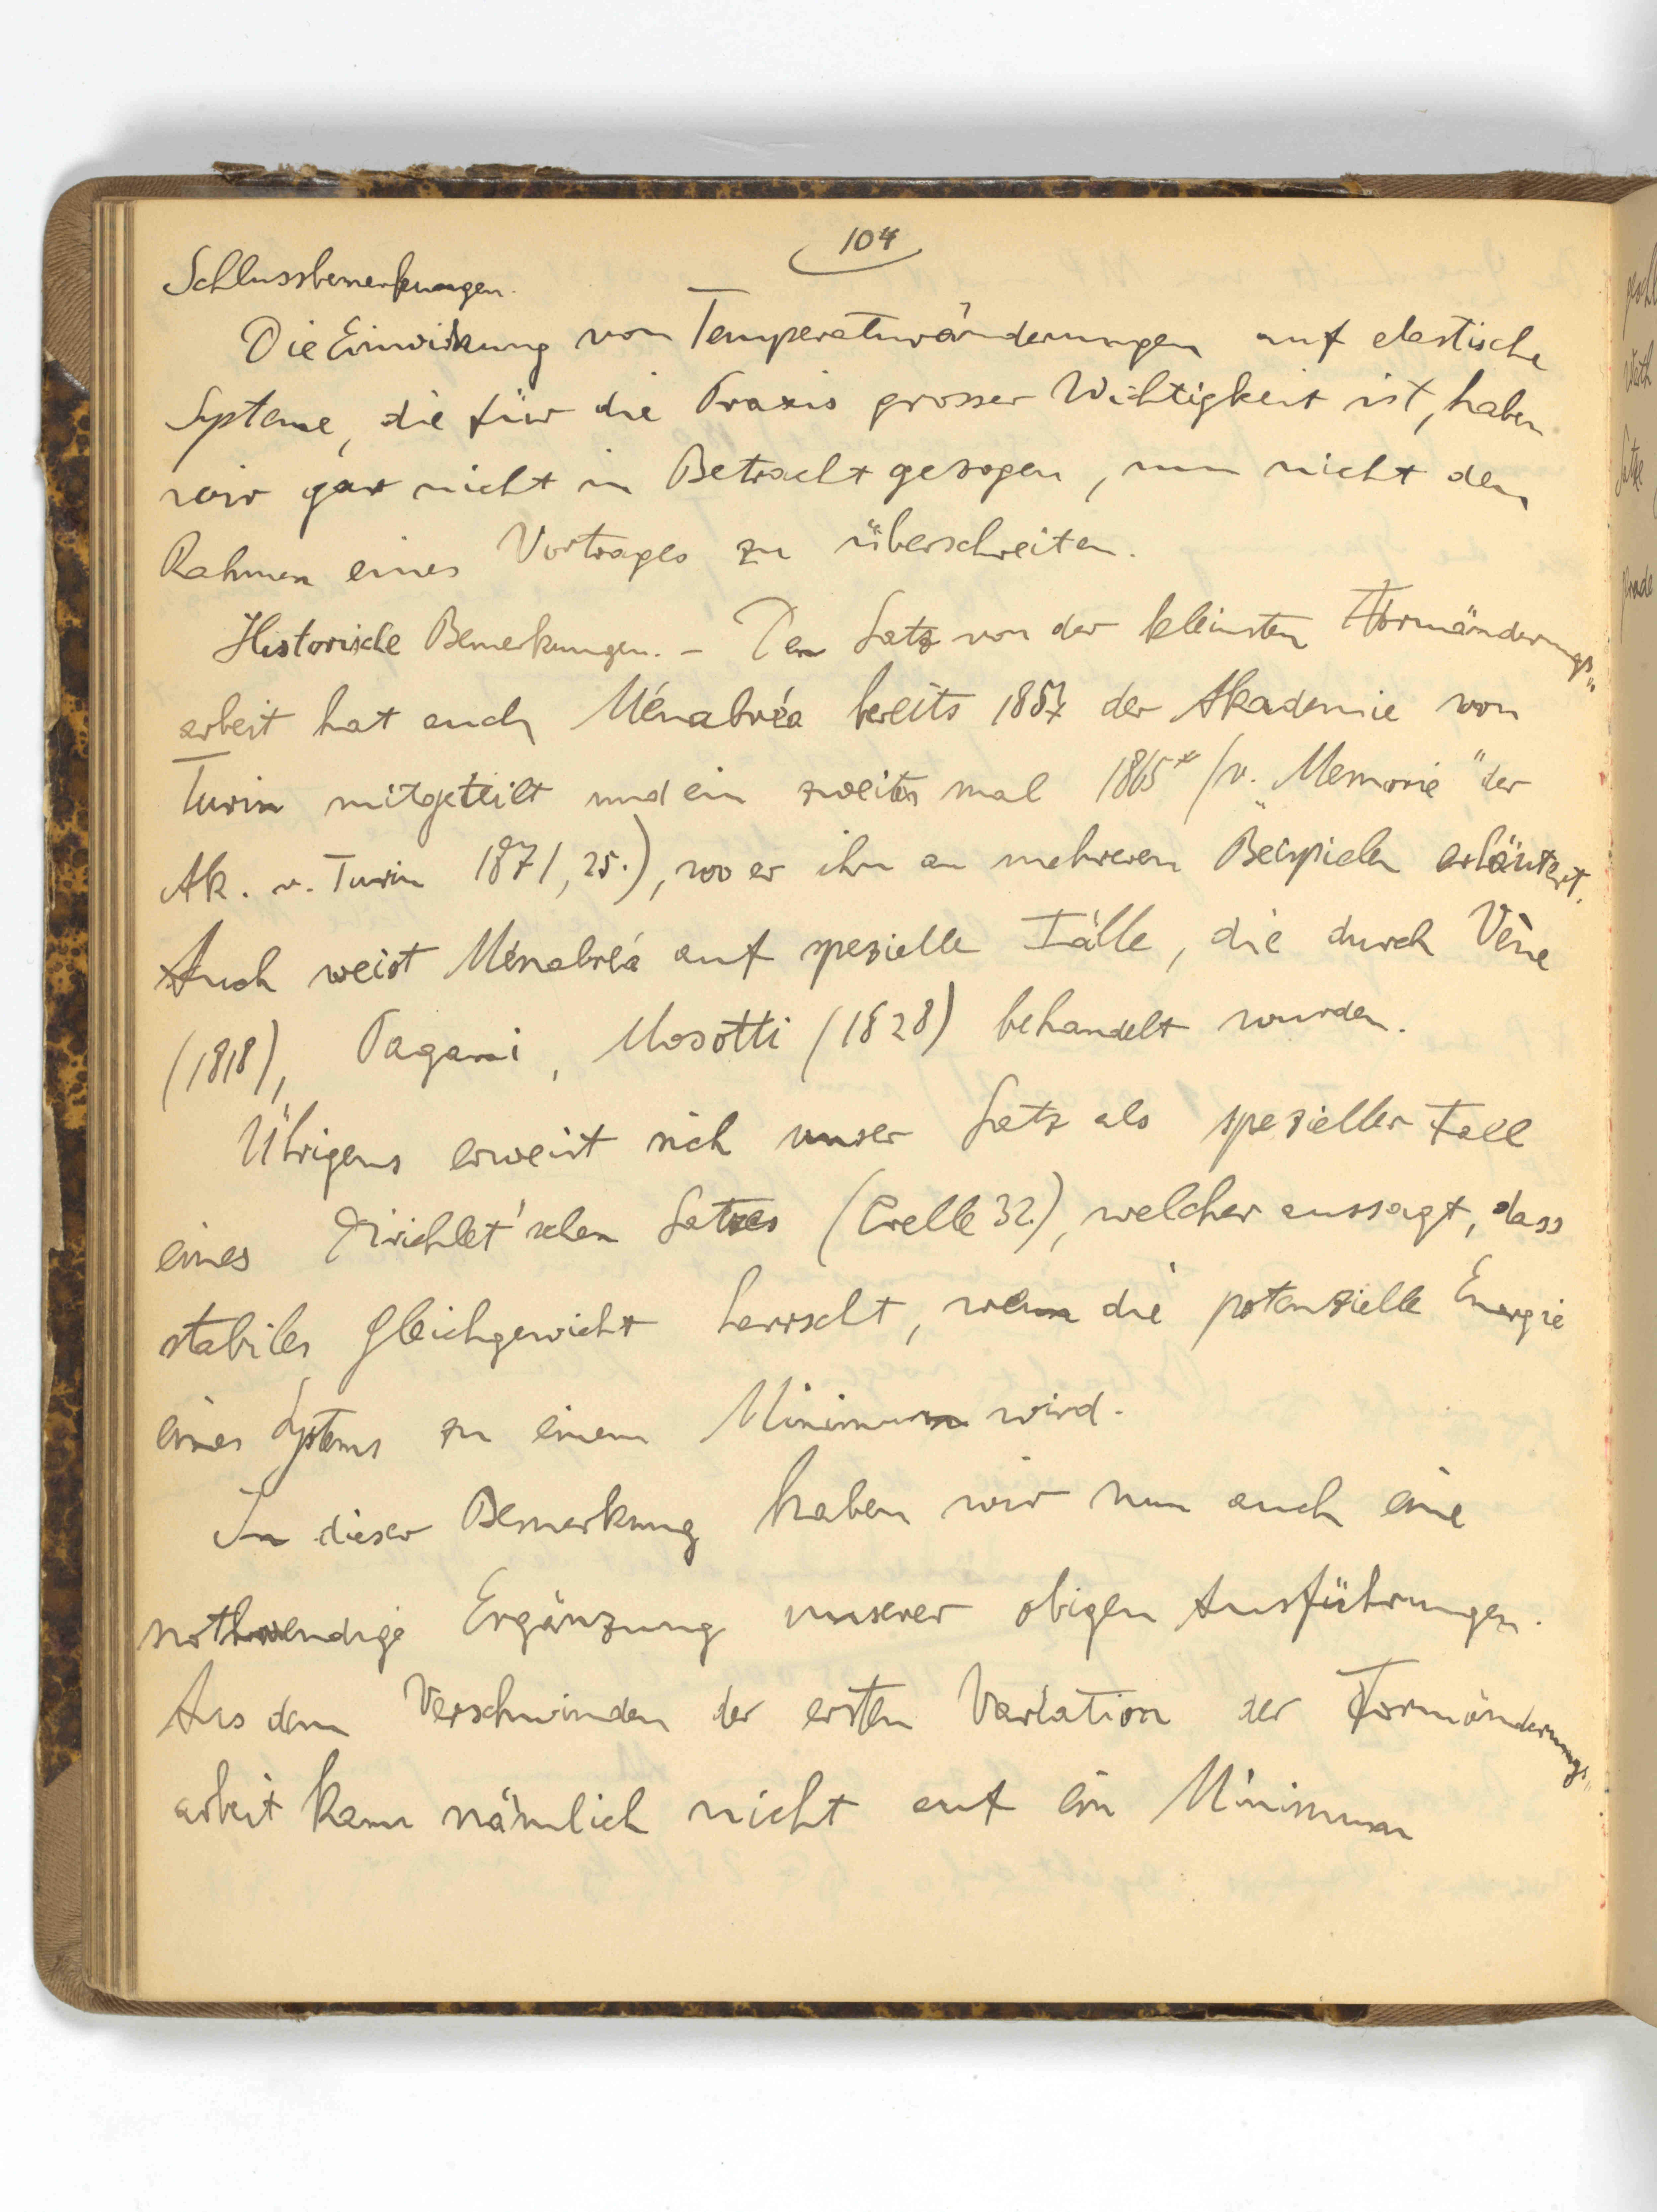 104
Schlussbemerkungen.
Die Einwirkung von Temperaturänderungen auf elastische
Systeme, die für die Praxis grosser Wichtigkeit ist, haben
wir gar nicht in Betracht gezogen, um nicht den
Rahmen eines Vortrages zu überschreiten.
Historische Bemerkungen. – Den Satz von der kleinsten Formänderungs„
arbeit hat auch Ménabréa bereits 1857 der Akademie von
Turin mitgeteilt und ein zweites mal 1865* (v. „Memorie" der
Ak. v. Turin 1871, 25.), wo er ihn an mehreren Beispielen erläutert.
Auch weist Ménabréa auf spezielle Fälle, die durch Vène
(1818), Pagani, Mosotti (1828) behandelt wurden.
Übrigens erweist sich unser Satz als spezieller Fall
eines Dirichlet'schen Satzes (Crelle 32.), welcher aussagt, dass
stabiles Gleichgewicht herrscht, wenn die potenzielle Energie
eines Systems zu einem Minimum wird.
In dieser Bemerkung haben wir nun auch eine
nothwendige Ergänzung unserer obigen Ausführungen.
Aus dem Verschwinden der ersten Variation der Formänderungs„
arbeit kann nämlich nicht auf ein Minimum
Satze